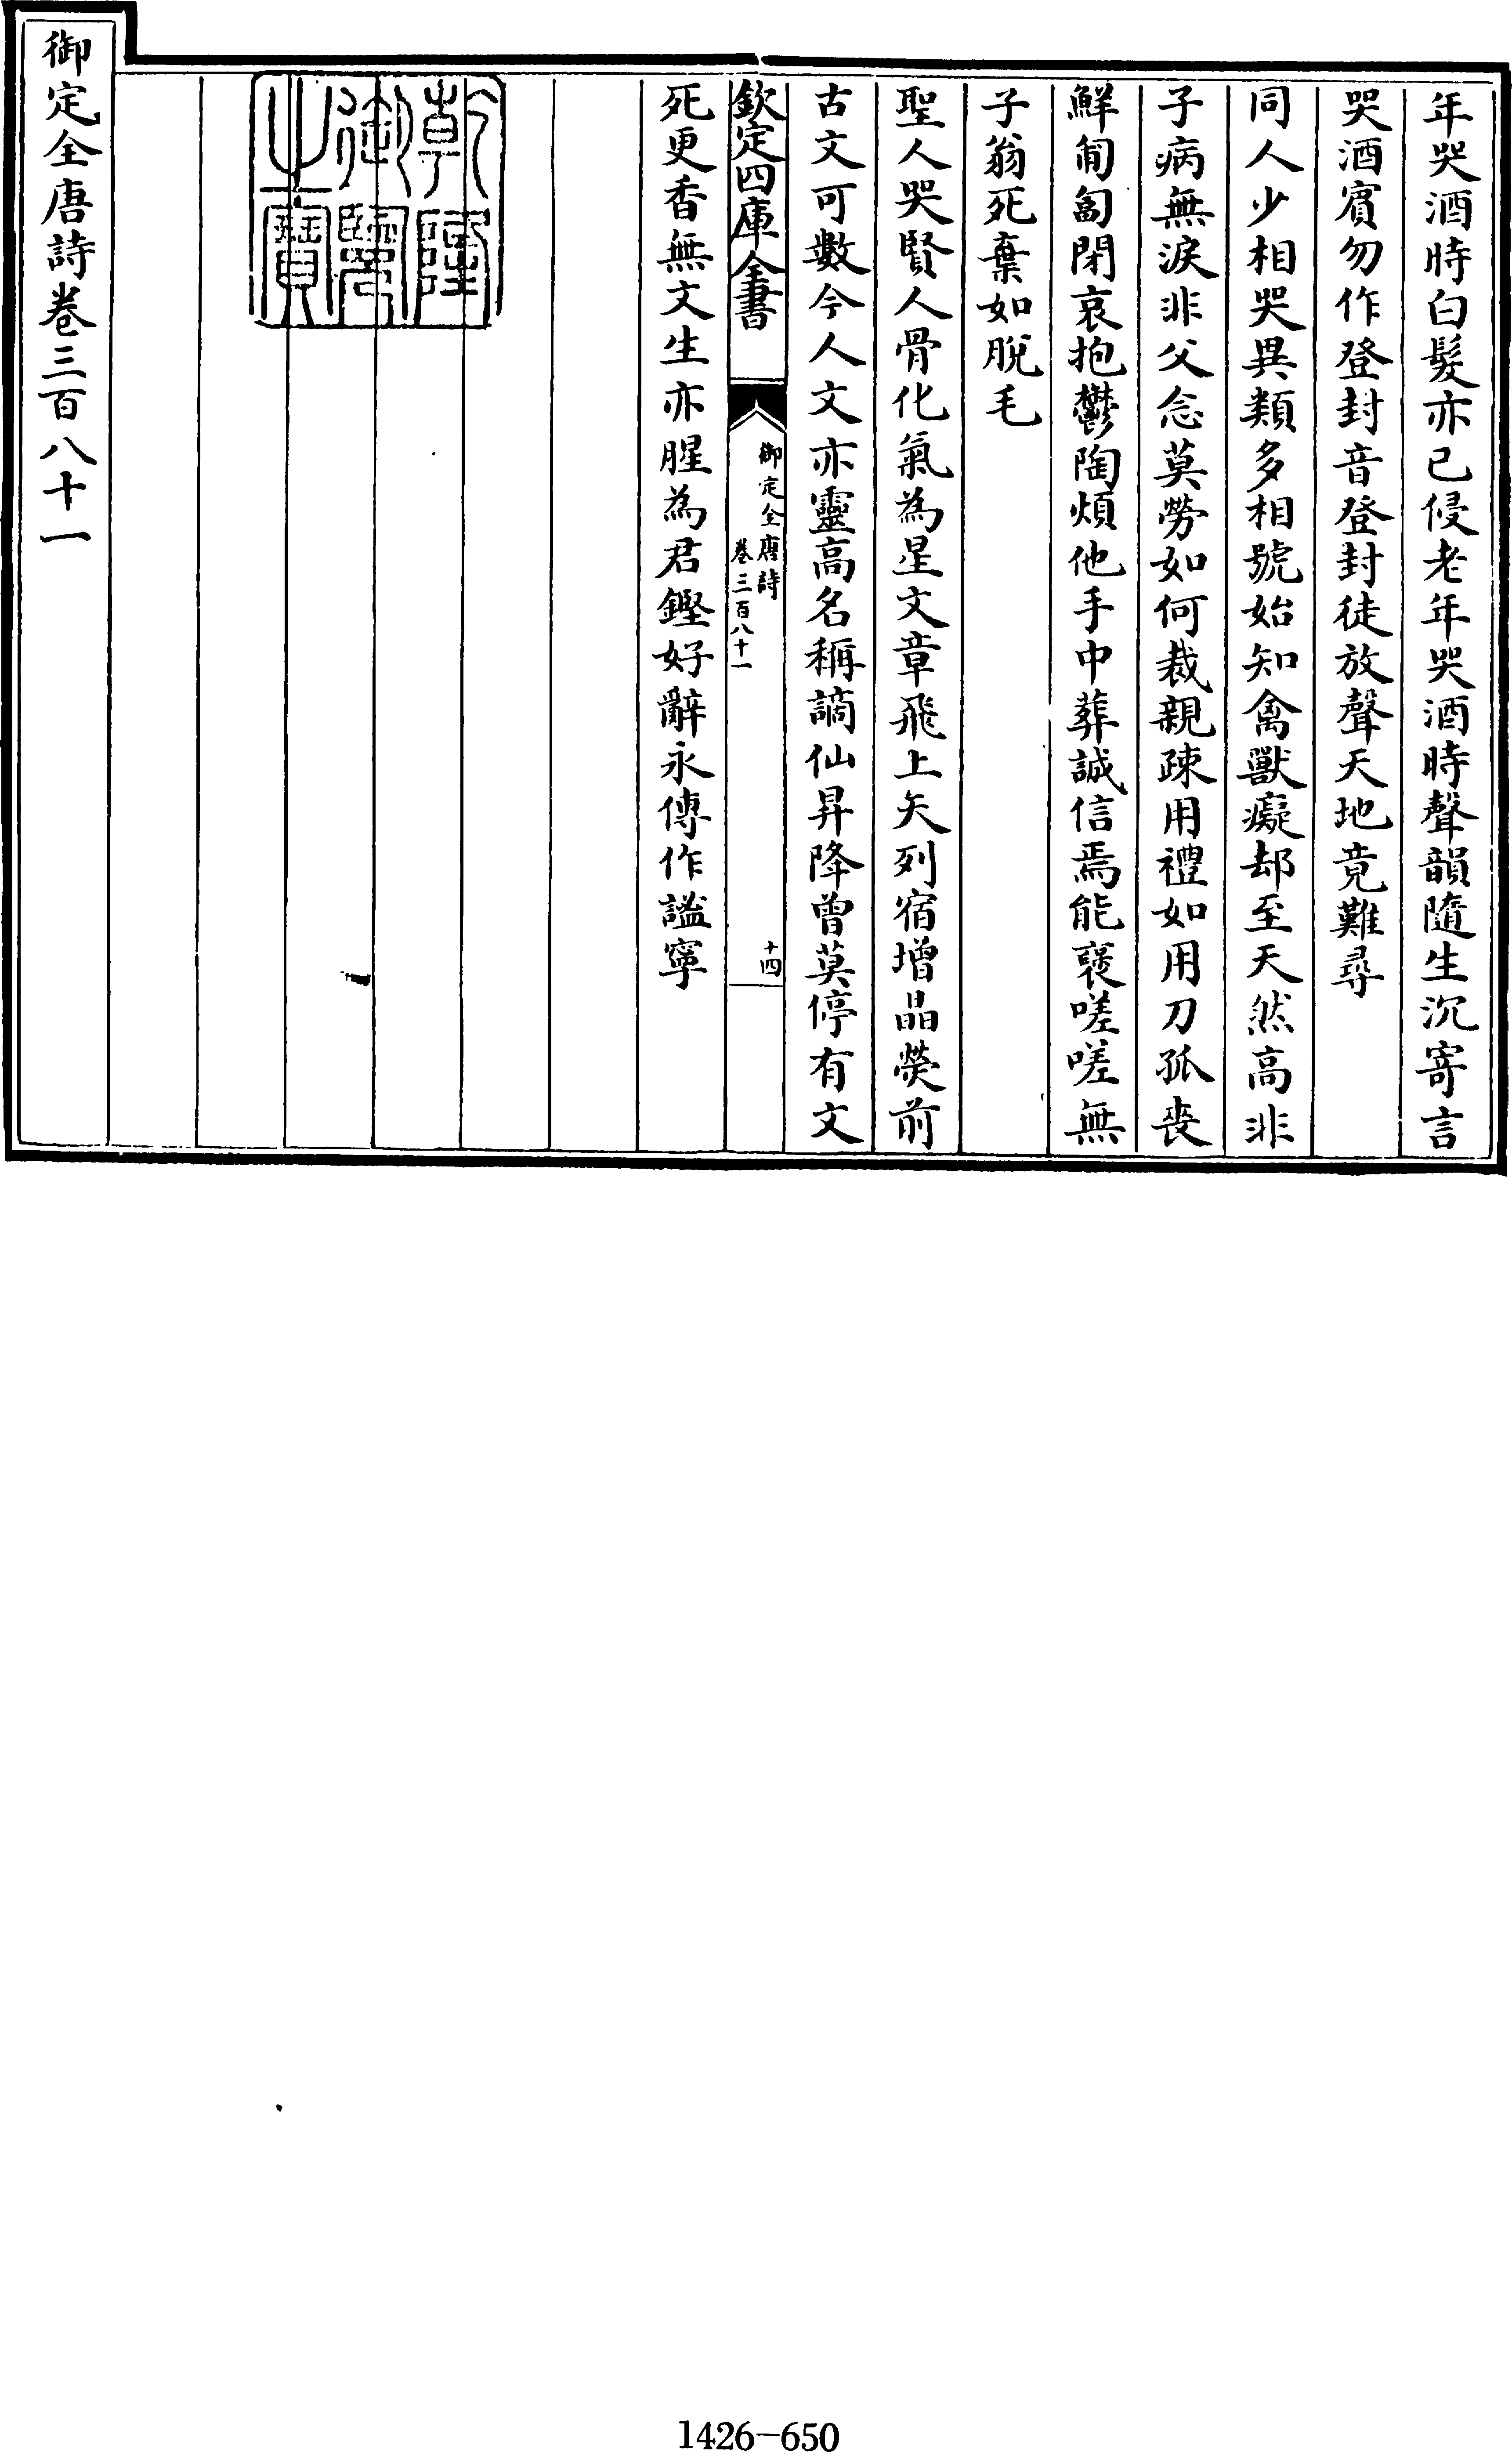 年哭酒時白髮亦已侵老年哭酒時聲韻隨生沉寄言
哭酒賓勿作登封音登封徒放聲天地竟難尋
同人少相哭異類多相號始知禽獸癡却至天然高非
子病無淚非父念莫勞如何裁親疎用禮如用刀孤喪
鮮匍匐閉哀抱鬱陶煩他手中葬誠信焉能襃嗟嗟無
子翁死棄如脫毛
聖人哭賢人骨化氣為星文章飛上天列宿增晶熒前
古文可數今人文亦靈高名稱謫仙昇降曾莫停有文
欽定四庫全書
御定全唐詩
卷三百八十一
十四
死更香無文生亦腥為君鏗好辭永傳作謚寧
乾隆
御覽
之寶
御定全唐詩卷三百八十一
1426-650